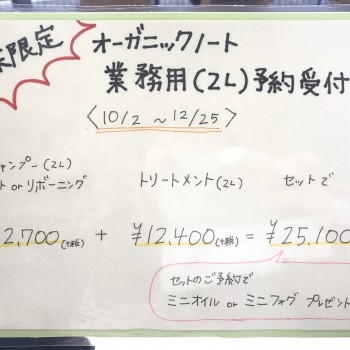 末限定
オーガニックノート
業務用(2L)予約受付
〈10/2 ~ 12/25〉
ャンプー(2L)
ト or リボーニング
トリートメント(2L)
セットで
2,700(+税) + ¥12,400(+税) = ¥25,100
セットのご予約で
ミニオイル or ミニフォグ プレゼント